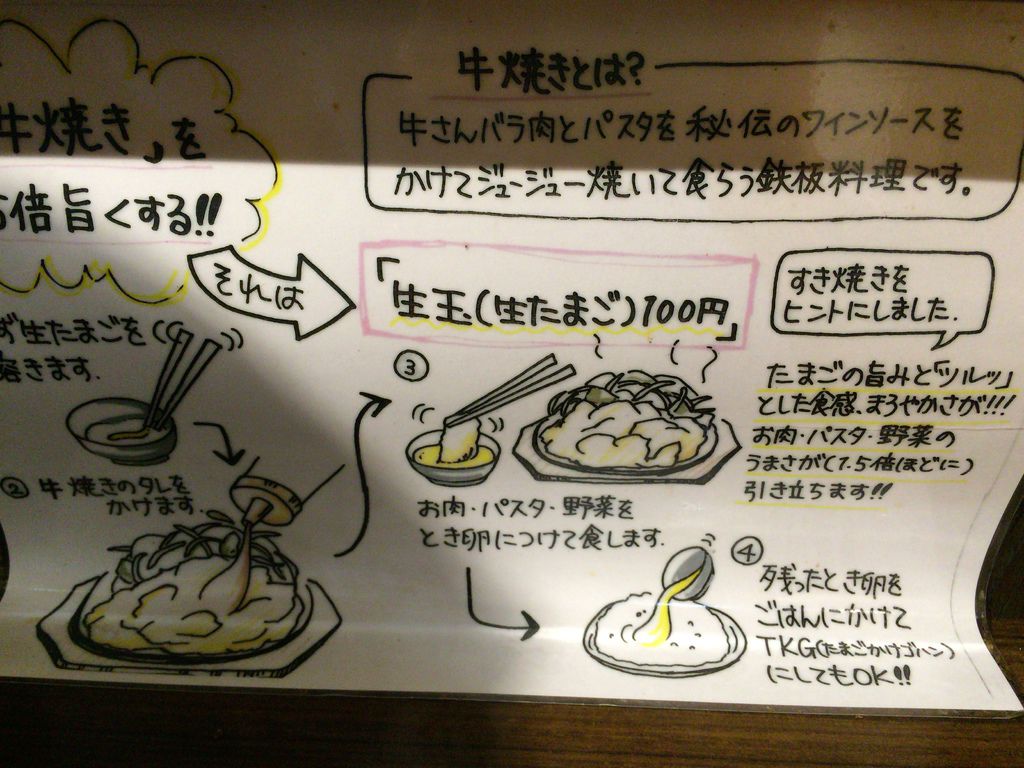 牛焼き」を
倍旨くする!!
牛焼きとは?
牛さんバラ肉とパスタを秘伝のワインソースを
かけてジュージュー焼いて食らう鉄板料理です。
それは
「生玉(生たまご)100円」
すき焼きを
ヒントにしました.
ず生たまごを
溶きます.
② 牛焼きのタレを
かけます.
③
お肉・パスタ・野菜を
とき卵につけて食します.
たまごの旨みと「ツルッ」
とした食感、まろやかさが!!!
お肉・パスタ・野菜の
うまさが(1.5倍ほどに)
引き立ちます!!
④
残ったとき卵を
ごはんにかけて
TKG(たまごかけゴハン)
にしてもOK!!